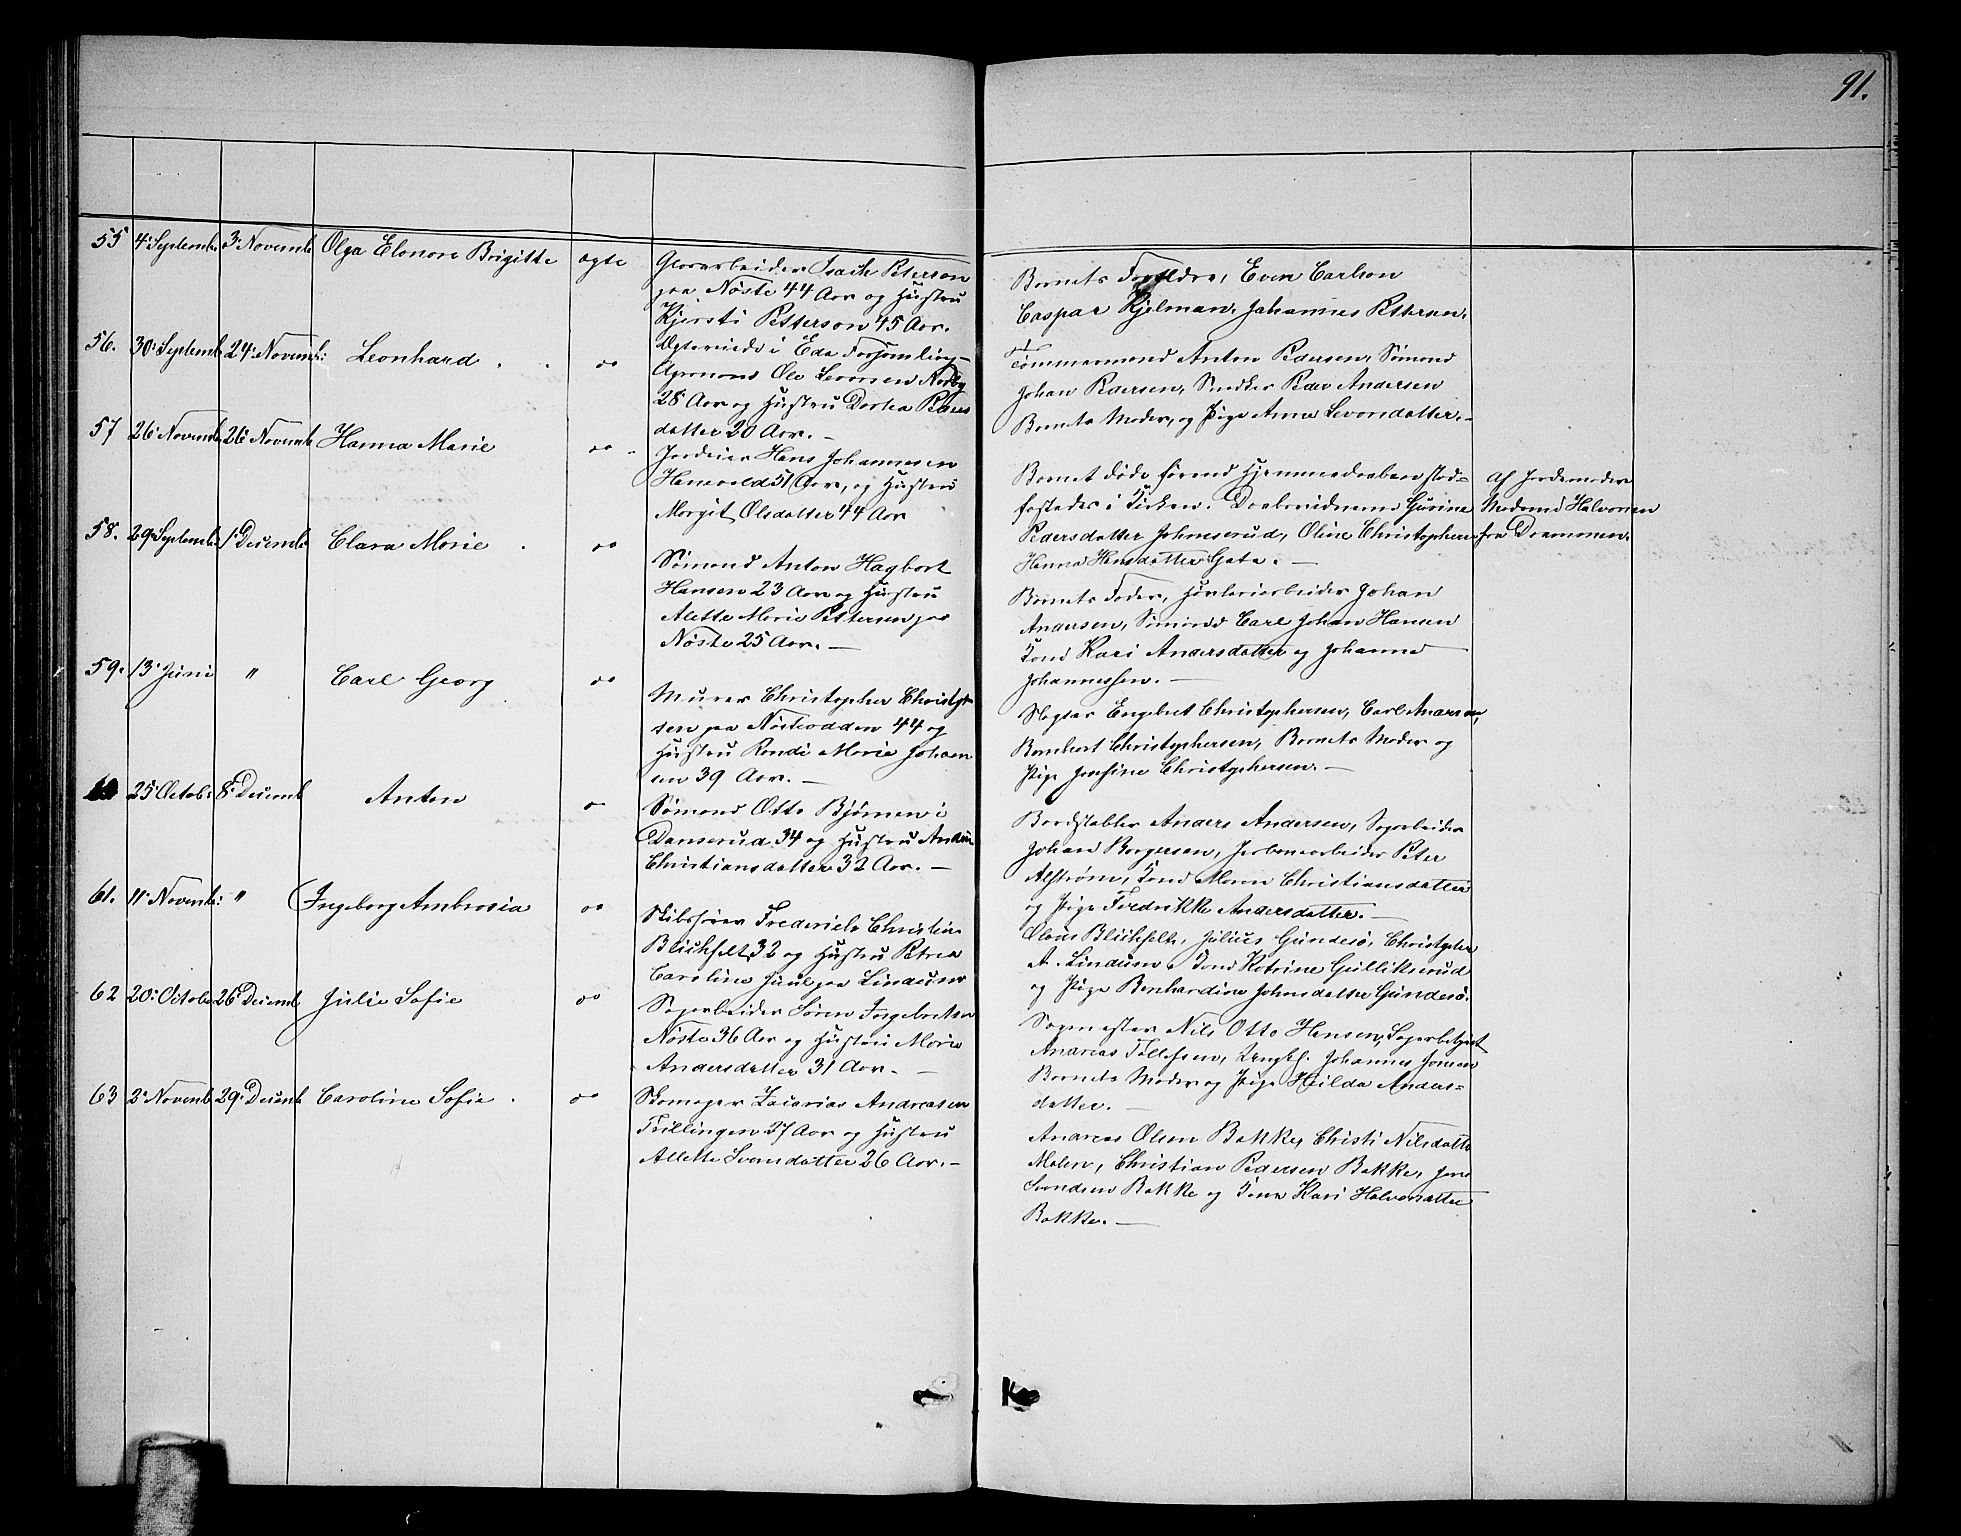 91.
55 4' Septemb. 3' Novemb Olga Elonore Brigitte ægte
Glasarbeider Isach Peterson
paa Nøste 44 Aar og Hustru
Kjersti Petterson 45 Aar.
Barnets Forældre, Even Carlson
Caspar Kjelman, Johannes Pettersen.
56. 30' Septemb 24' Novemb: Leonhard oo
Ole
28 Aar og Hustru Dorthea Peders
datter 20 Aar. —
Tømmermand Anton Pedersen, Sømand
Johan Pedersen, Snedker Peder Andersen
Barnets Moder, og Pige Anna
57 26' Novemb 26' Novemb Hanna Marie oo
Jordeier Hans Johannesen
51 Aar, og Hustru
Margit Olsdatter 44 Aar
Barnet døde førend Hjemmedaaben stad-
fæstedes i Kirken. Daabsvidnerne Gurine
Pedersdatter Johnserud, Oline Christophers
Hanna Hansdatter Gata. —
Af Jordemoder
Madame Halvorsen
fra Drammen.
58. 29' Septemb 1' Decemb Clara Marie oo
Sømand Anton Hagbart
Hansen 23 Aar og Hustru
Alette Marie Pettersen paa
Nøste 25 Aar. —
Barnets Fader, Høvleriarbeider Johan
Andersen, Sømand Carl Johan Hansen
Kone Kari Andersdatter og Johanne
Johannessen. —
59. 13' Juni " Carl Georg oo
Murer Christopher Christoph
sen paa Nøsteodden 44 og
Hustru Randi Marie Johan
en 39 Aar. —
Slagter Engebret Christophersen, Carl Andersen,
Bernhart Christophersen, Barnets Moder og
Pige Josefine Christophersen. —
25' Octob: 8' Decemb Anton o—
Sømand Otto Bjørnsen i
Danserud 34 og Hustru
Christiansdatter 32 Aar. —
Bordstabler Anders Andersen, Sagarbeider
Johan Borgersen, Jerbanearbeider Peter
Ahlstrøm, Kone Maren Christiansdatter
og Pige Fredrikke Andersdatter. —
61. 11' Novemb: " Ingeborg Ambrosia oo
Skibsfører Frederick Christian
Blichfelt 32 og Hustru Petrea
Caroline Juul paa Lindum
Olaus Blichfelt, Julius Gundesø, Christopher
A. Lindum, Kone Katrine Gullikserud
og Pige Bernhardine Johnsdatter Gundesø.
62 20' Octobe 26' Decemb Julie Sofie oo
Sagarbeider Søren Ingebretsen
Nøste 36 Aar og Hustru Marie
Andersdatter 31 Aar. —
Sagmester Nils Otto Hansen, Sagarbeider
Andreas Tollefsen, Ungkl. Johannes Jonsen
Barnets Moder og Pige Hilda Anders-
datter. —
63 2' Novemb 29' Decemb Caroline Sofie oo
Skomager Zacarias Andreasen
Trillingen 27 Aar og Hustru
Alette Svensdatter 26 Aar. —
Andreas Olsen Bakke, Christi Nilsdatter
Malen, Christian Pedersen Bakke,
Svendsen Bakke og Kone Kari Halvorsdatter
Bakke. —